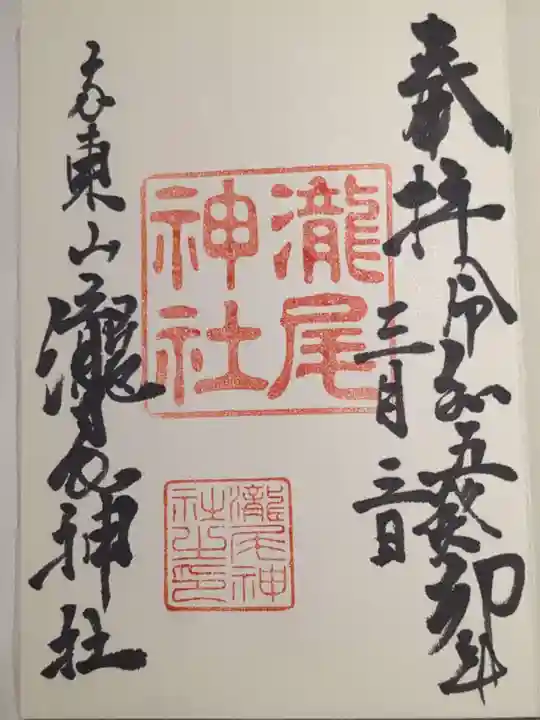 奉拝 令和五歳癸卯年
三月三日
瀧尾
神社
瀧尾神
社之印
京東山 瀧尾神社